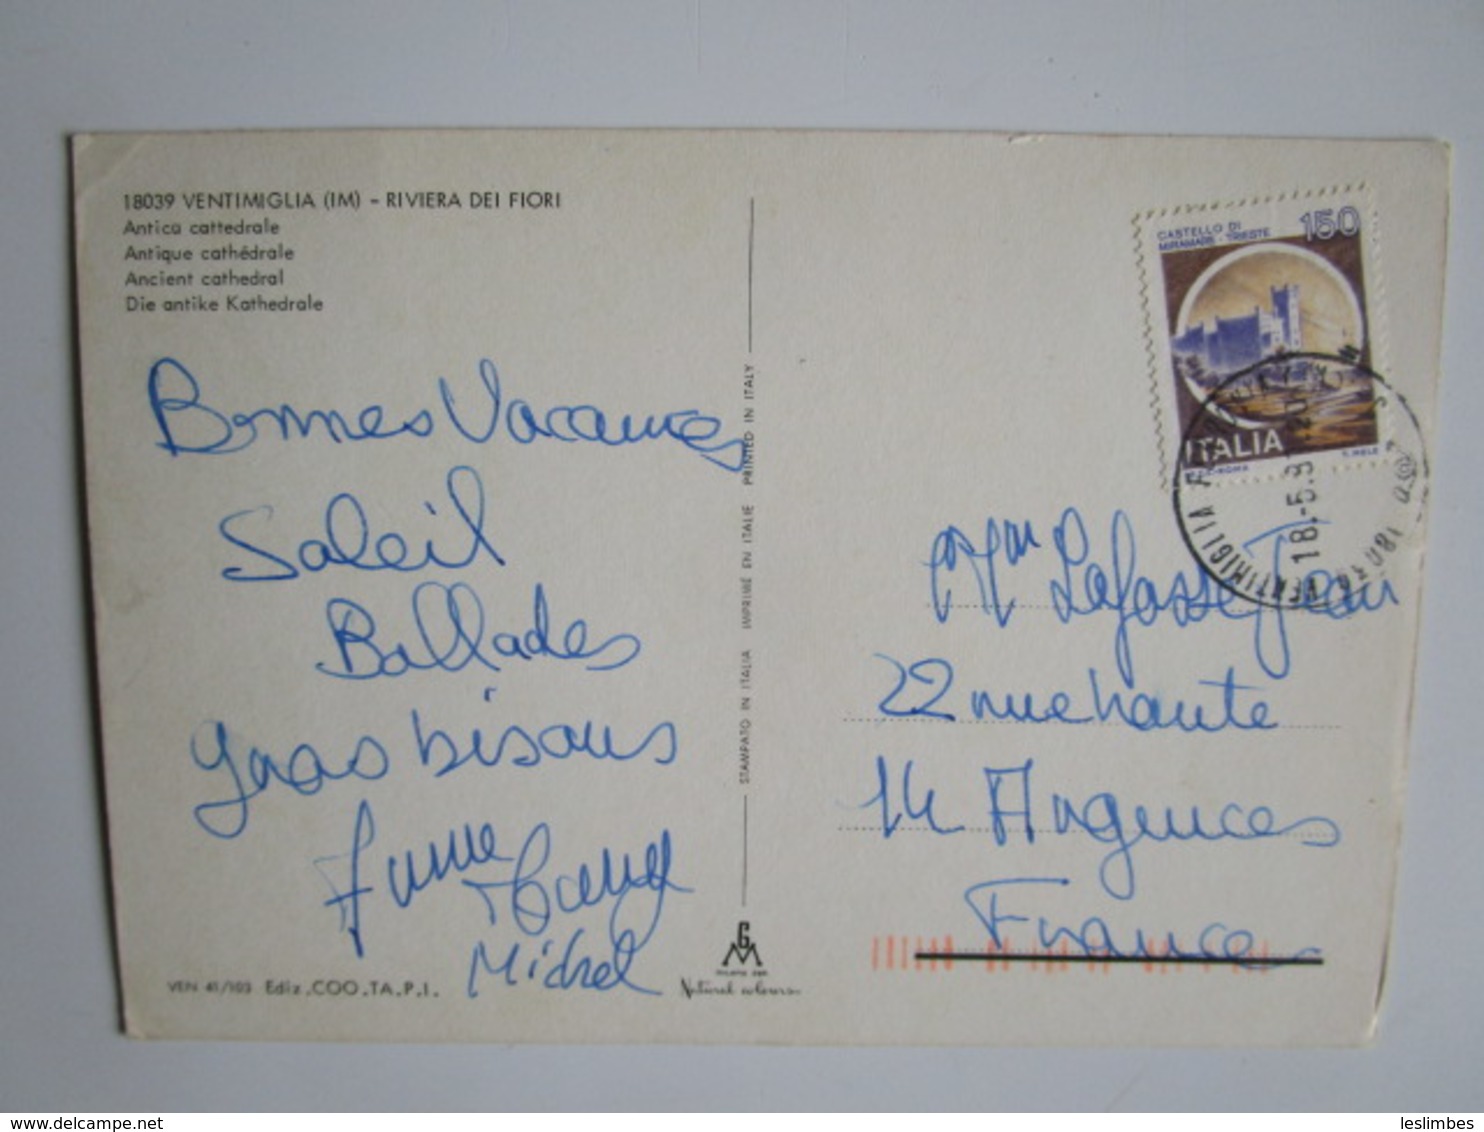 18039 VENTIMIGLIA (IM) - RIVIERA DEI FIORI
Antica cattedrale
Antique cathédrale
Ancient cathedral
Die antike Kathedrale
Bonnes Vacances
Soleil
Ballades
gros bisous
Michel
VEN 41/103 Ediz. COO.TA.P.I.
STAMPATO IN ITALIA IMPRIMÉ EN ITALIE PRINTED IN ITALY
GM
Natural colours
CASTELLO DI
MIRAMARE - TRIESTE
150
ITALIA
VENTIMIGLIA
18.-5.8
Lafasse Jean
22 rue haute
14 Argences
France
delcampe.net
leslimbes